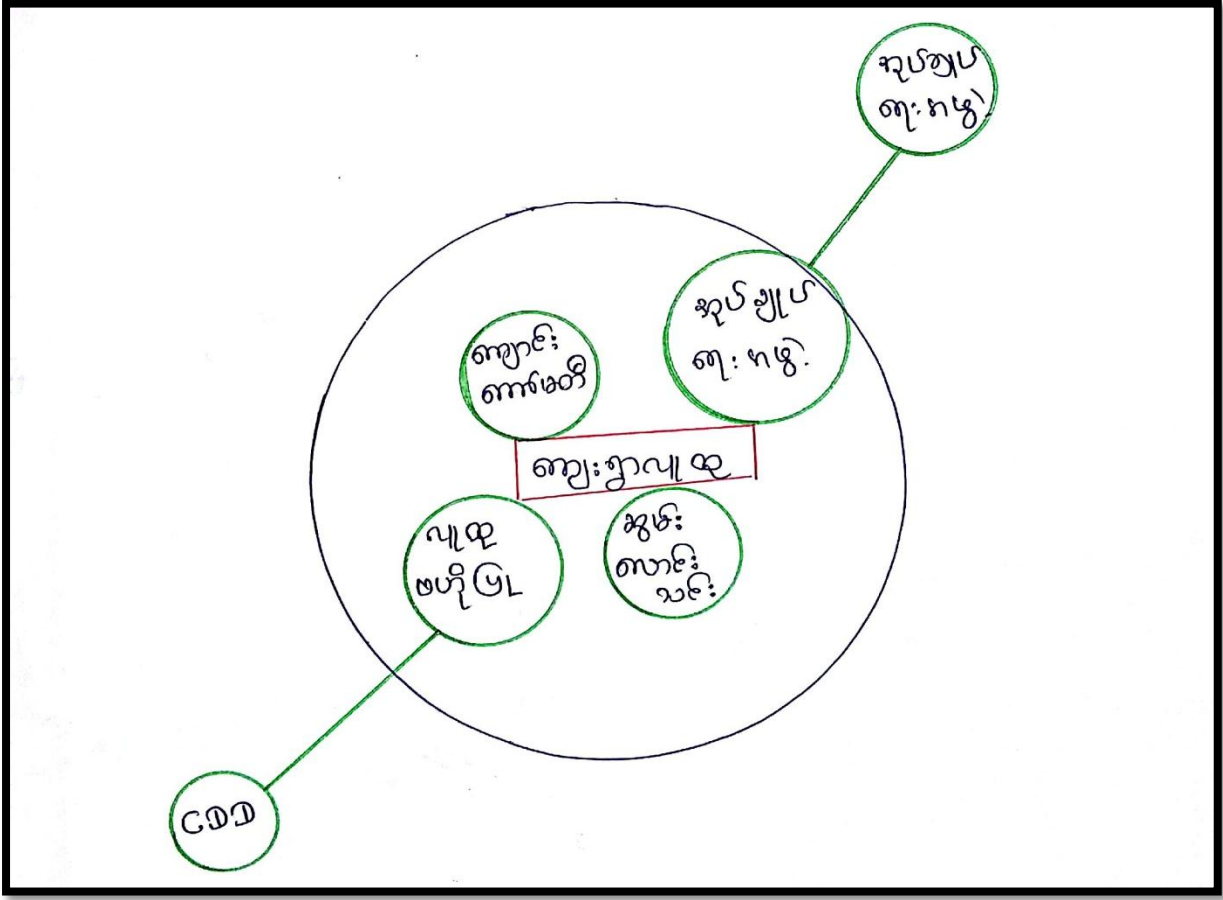 အုပ်ချုပ်
ရေး အဖွဲ့
အုပ်ချုပ်
ရေး အဖွဲ့
ကျောင်း
ကော်မတီ
ကျေးရွာလူထု
လူထု
ဗဟိုပြု
ဆွမ်း
လောင်း
သင်း
CDD